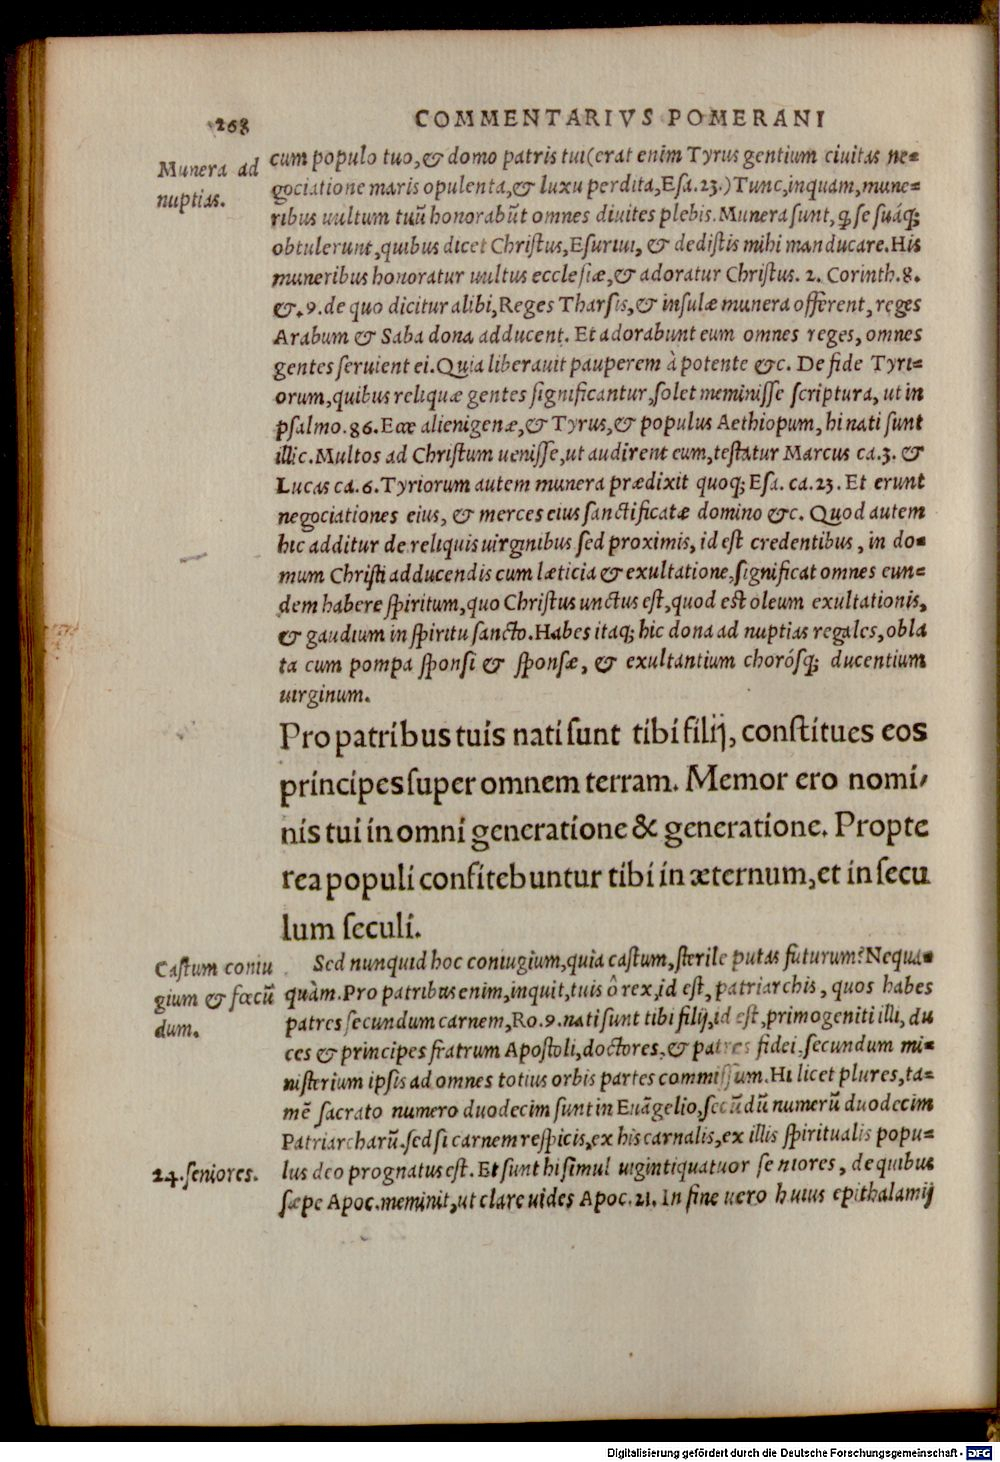 268
COMMENTARIVS POMERANI
Munera ad
nuptias.
cum populo tuo, & domo patris tui(erat enim Tyrus gentium ciuitas ne-
gociatione maris opulenta, & luxu perdita, Esa. 23.) Tunc, inquam, mune-
ribus uultum tuũ honorabũt omnes diuites plebis. Munera sunt, ꝙ se suáq;
obtulerunt, quibus dicet Christus, Esuriui, & dedistis mihi manducare. His
muneribus honoratur uultus ecclesiæ, & adoratur Christus. 2. Corinth. 8.
&. 9. de quo dicitur alibi, Reges Tharsis, & insulæ munera offerent, reges
Arabum & Saba dona adducent. Et adorabunt eum omnes reges, omnes
gentes seruient ei. Quia liberauit pauperem à potente &c. De fide Tyri-
orum, quibus reliquæ gentes significantur, solet meminisse scriptura, ut in
psalmo. 86. Ecce alienigenæ, & Tyrus, & populus Aethiopum, hi nati sunt
illic. Multos ad Christum uenisse, ut audirent eum, testatur Marcus ca. 3. &
Lucas ca. 6. Tyriorum autem munera prædixit quoq; Esa. ca. 23. Et erunt
negociationes eius, & merces eius sanctificatæ domino &c. Quod autem
hic additur de reliquis uirginibus sed proximis, id est credentibus, in do-
mum Christi adducendis cum læticia & exultatione, significat omnes eun-
dem habere spiritum, quo Christus unctus est, quod est oleum exultationis,
& gaudium in spiritu sancto. Habes itaq; hic dona ad nuptias regales, obla
ta cum pompa sponsi & sponsæ, & exultantium chorósq; ducentium
uirginum.
Pro patribus tuis nati sunt tibi filij, constitues eos
principes super omnem terram. Memor ero nomi-
nis tui in omni generatione & generatione. Propte
rea populi confitebuntur tibi in æternum, et in secu
lum seculi.
Castum coniu
gium & fœcũ
dum.
Sed nunquid hoc coniugium, quia castum, sterile putas futurum? Nequa-
quàm. Pro patribus enim, inquit, tuis ô rex, id est, patriarchis, quos habes
patres secundum carnem, Ro. 9. nati sunt tibi filij, id est, primogeniti illi, du
ces & principes fratrum Apostoli, doctores, & patres fidei, secundum mi-
nisterium ipsis ad omnes totius orbis partes commissum. Hi licet plures, ta-
mẽ sacrato numero duodecim sunt in Euãgelio, secũdũ numerũ duodecim
Patriarcharũ. sed si carnem respicis, ex his carnalis, ex illis spiritualis popu-
24. seniores.
lus deo prognatus est. Et sunt hi simul uigintiquatuor seniores, de quibus
sæpe Apoc. meminit, ut clare uides Apoc. 21. In fine uero huius epithalamij
Digitalisierung gefördert durch die Deutsche Forschungsgemeinschaft - DFG